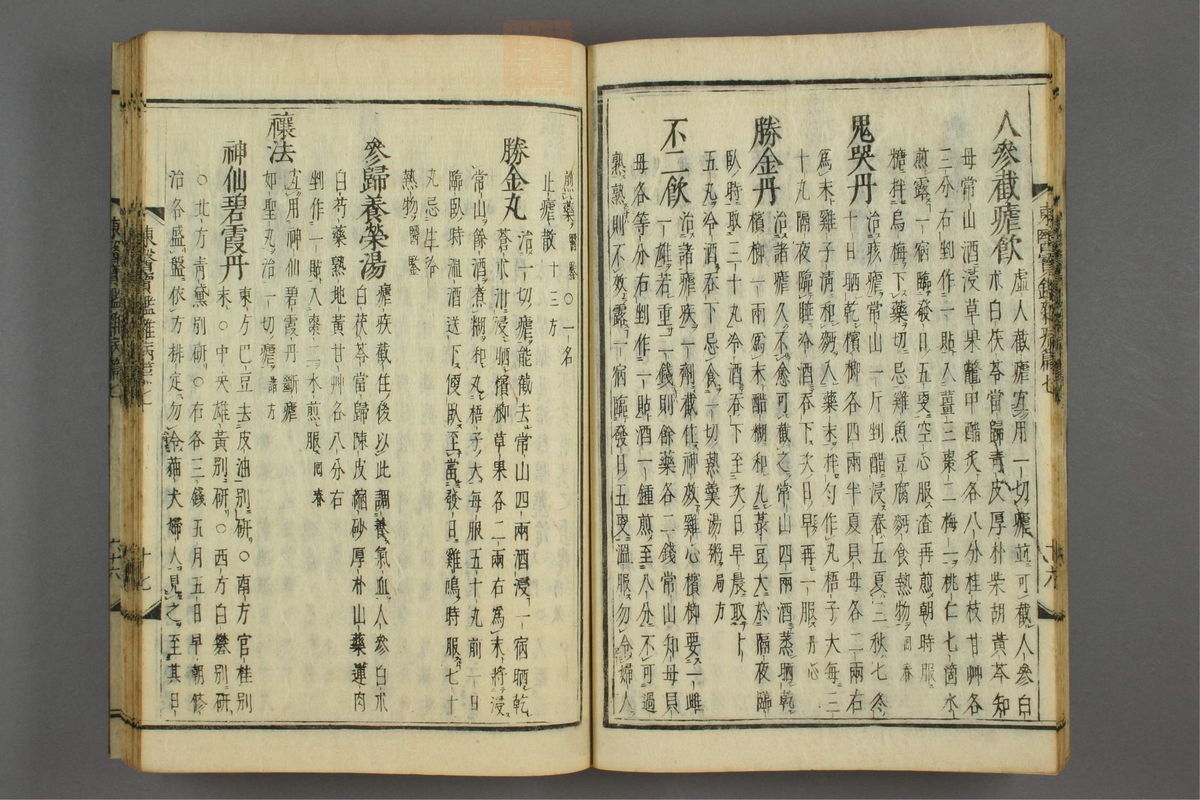 人參截瘧飮虛人截瘧宜用一切瘧並可截人參白
朮白茯苓當歸靑皮厚朴柴胡黃芩知
母常山酒浸草果鱉甲醋炙各八分桂枝甘艸各
三分右剉作一貼入薑三棗二梅一桃仁七箇水
煎露一宿臨發日五更空心服渣再煎朝時服
糖拌烏梅下藥切忌雞魚豆腐麪食熱物回春
鬼哭丹治痎瘧常山一斤剉醋浸春五夏三秋七冬
十日晒乾檳榔各四兩半夏貝母各二兩右
爲末雞子淸和麪入藥末拌勻作丸梧子大每三
十丸隔夜冷酒呑下次日早再一服丹心
勝金丹治諸瘧久不愈可截之常山四兩酒蒸晒乾
檳榔一兩爲末醋糊和丸菉豆大於隔夜臨
臥時取三十丸冷酒呑下至次日早晨取
五丸冷酒呑下忌食一切熱羹湯粥局方
不二飮治諸瘧疾一劑截住神效雞心檳榔要一雌
一雄若重二錢則餘藥各二錢常山知母貝
母各等分右剉作一貼酒一鍾煎至八分不可過
熟熟則不效露一宿臨發日五更溫服勿令婦人
煎藥醫鑑○一名
止瘧散十三方
勝金丸治一切瘧能截去常山四兩酒浸一宿晒乾
蒼朮泔浸晒檳榔草果各二兩右爲末將浸
常山餘酒煮糊和丸梧子大每服五十丸前一日
臨臥時溫酒送下便臥至當發日雞鳴時服七十
丸忌生冷
熱物醫鑑
參歸養榮湯瘧疾截住後以此調養氣血人參白朮
白茯苓當歸陳皮縮砂厚朴山藥蓮肉
白芍藥熟地黃甘艸各八分右
剉作一貼入棗二水煎服回春
禳法宜用神仙碧霞丹斷瘧
如聖丸治一切瘧諸方
神仙碧霞丹東方巴豆去皮油別硏○南方官桂別
末○中央雄黃別硏○西方白礬別硏
○北方靑黛別硏○右各三錢五月五日早朝修
治各盛盤依方排定勿令猫犬婦人見之至其日